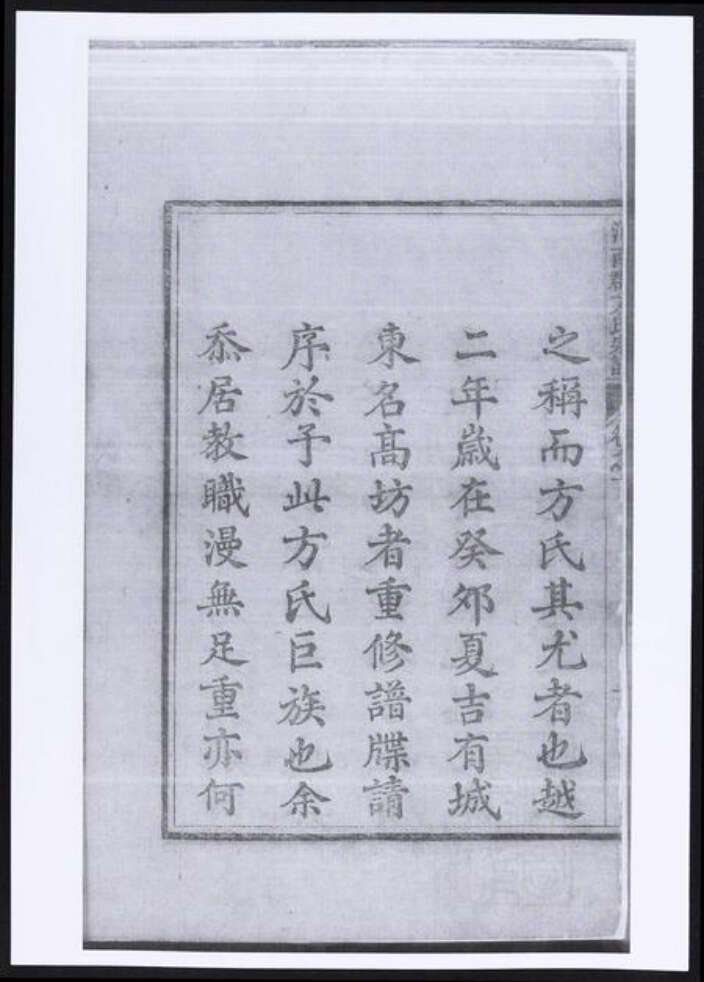 之稱而方氏其尤者也越
二年歲在癸卯夏吉有城
東名高坊者重修譜牒請
序於予此方氏巨族也余
忝居教職漫無足重亦何